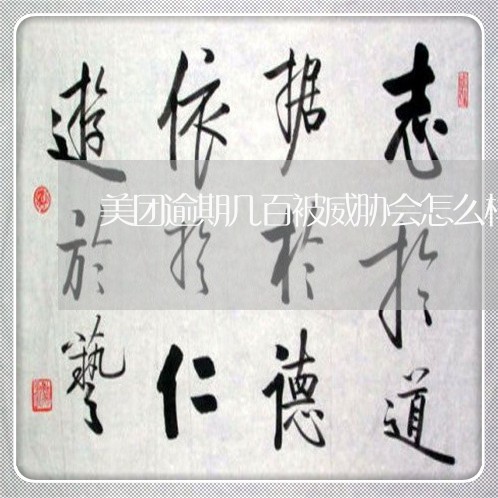 志於道
据於德
依於仁
遊於藝
美团逾期几百被威胁会怎么